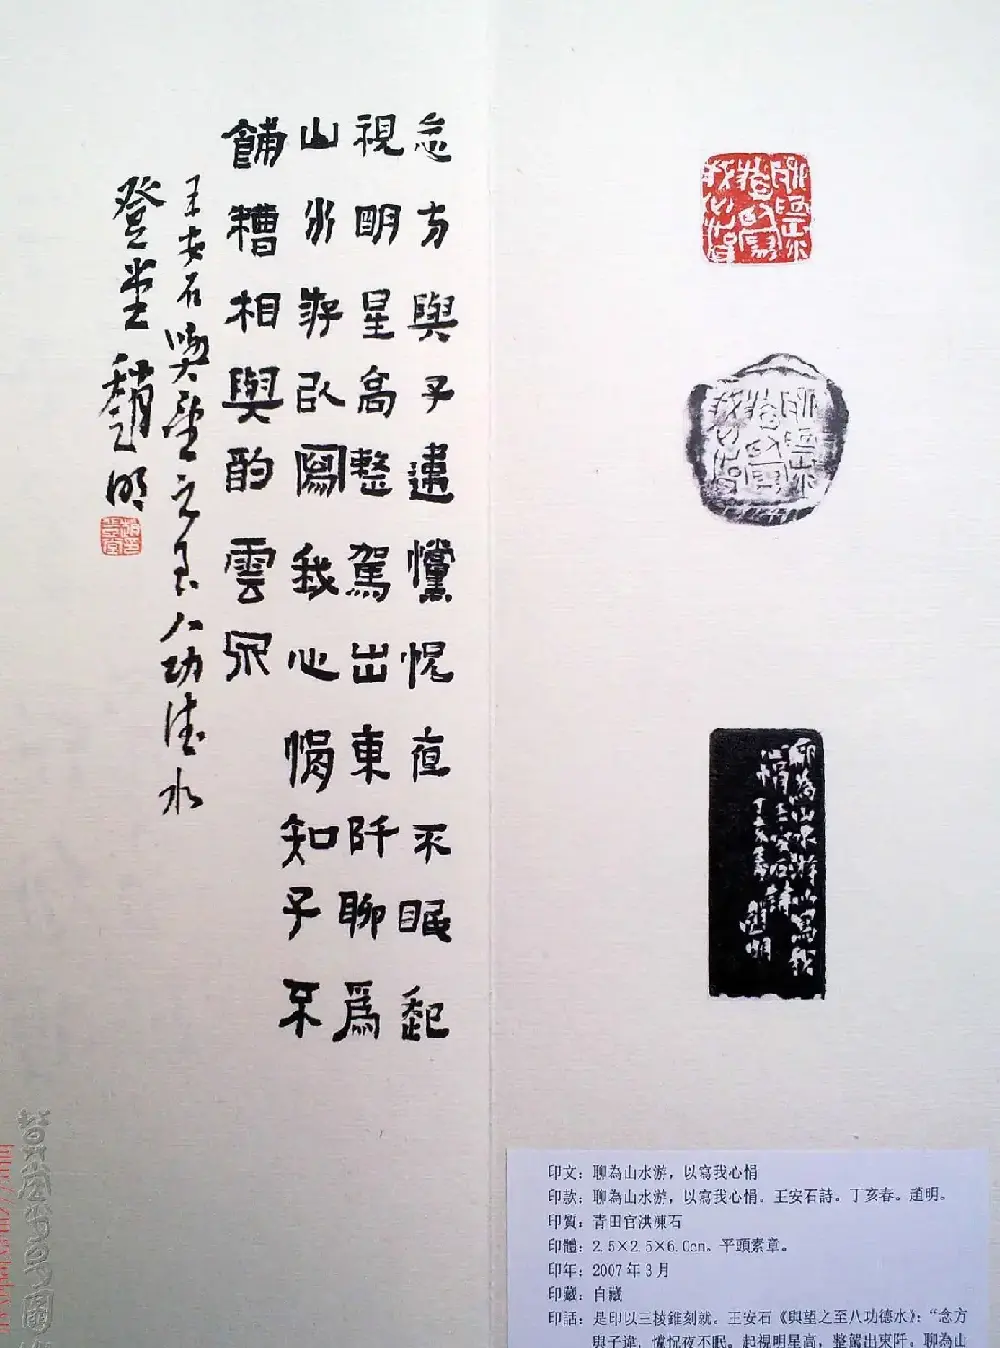 念方與子違戃怳夜不眠起
視明星高整駕出東阡聊爲
山水游以寫我心悁知子不
餔糟相與酌雲泉
王安石與望之至八功德水
登堂趙明
聊為山水游以寫我
心悁王安石詩
丁亥春趙明
印文：聊為山水游，以寫我心悁
印款：聊為山水游，以寫我心悁。王安石詩。丁亥春。趙明。
印質：青田官洪凍石
印體：2.5×2.5×6.0cm。平頭素章。
印年：2007年3月
印藏：自藏
印話：是印以三棱錐刻就。王安石《與望之至八功德水》：“念方
與子違，戃怳夜不眠。起視明星高，整駕出東阡。聊為山